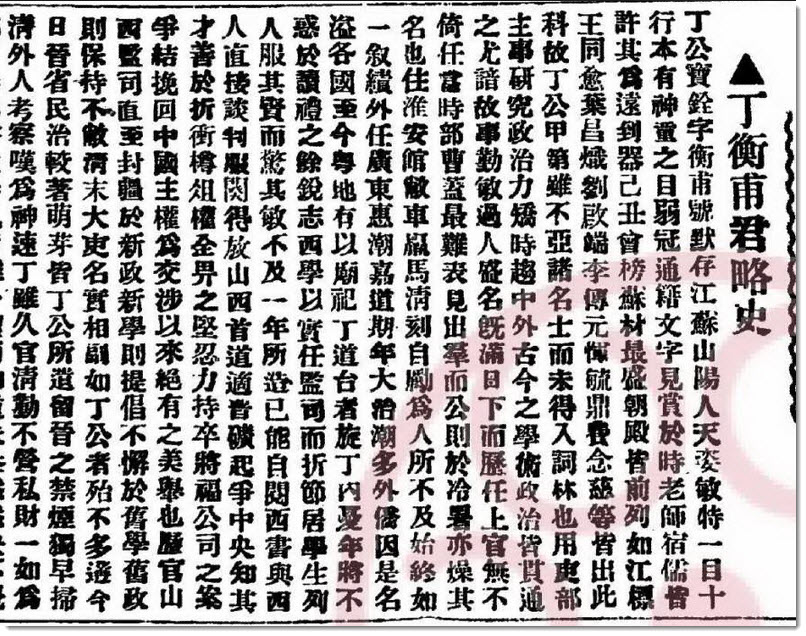 ▲丁衡甫君略史
丁公寶銓字衡甫號默存江蘇山陽人天姿敏特一目十
行本有神童之目弱冠通籍文字見賞於時老師宿儒皆
許其爲遠到器己丑會榜蘇材最盛朝殿皆前列如江標
王同愈葉昌熾劉啟端李傳元惲毓鼎費念慈等皆出此
科故丁公甲第雖不亞諸名士而未得入詞林也用吏部
主事研究政治力矯時趨中外古今之學術政治皆貫通
之尤諳故事勤敏過人盛名旣滿日下而歷任上官無不
倚任當時部曹蓋最難表見出羣而公則於冷署亦燥其
名也住淮安館敝車羸馬淸刻自勵爲人所不及始終如
一敘績外任廣東惠潮嘉道期年大治潮多外僑因是名
溢各國至今粤地有以廟祀丁道台者旋丁內憂年將不
惑於讀禮之餘銳志西學以實任監司而折節居學生列
人服其賢而驚其敏不及一年所造已能自閱西書與西
人直接談判服闋得放山西首道適晋礦起爭中央知其
才善於折衝樽俎權全畀之堅忍力持卒將福公司之案
爭結挽回中國主權爲交涉以來絕有之美舉也歷官山
西監司直至封疆於新政新學則提倡不懈於舊學舊政
則保持不敝淸末大吏名實相副如丁公者殆不多遘今
日晉省民治較著萌芽皆丁公所遺留晉之禁煙獨早掃
淸外人考察嘆爲神速丁雖久官淸勤不營私財一如爲